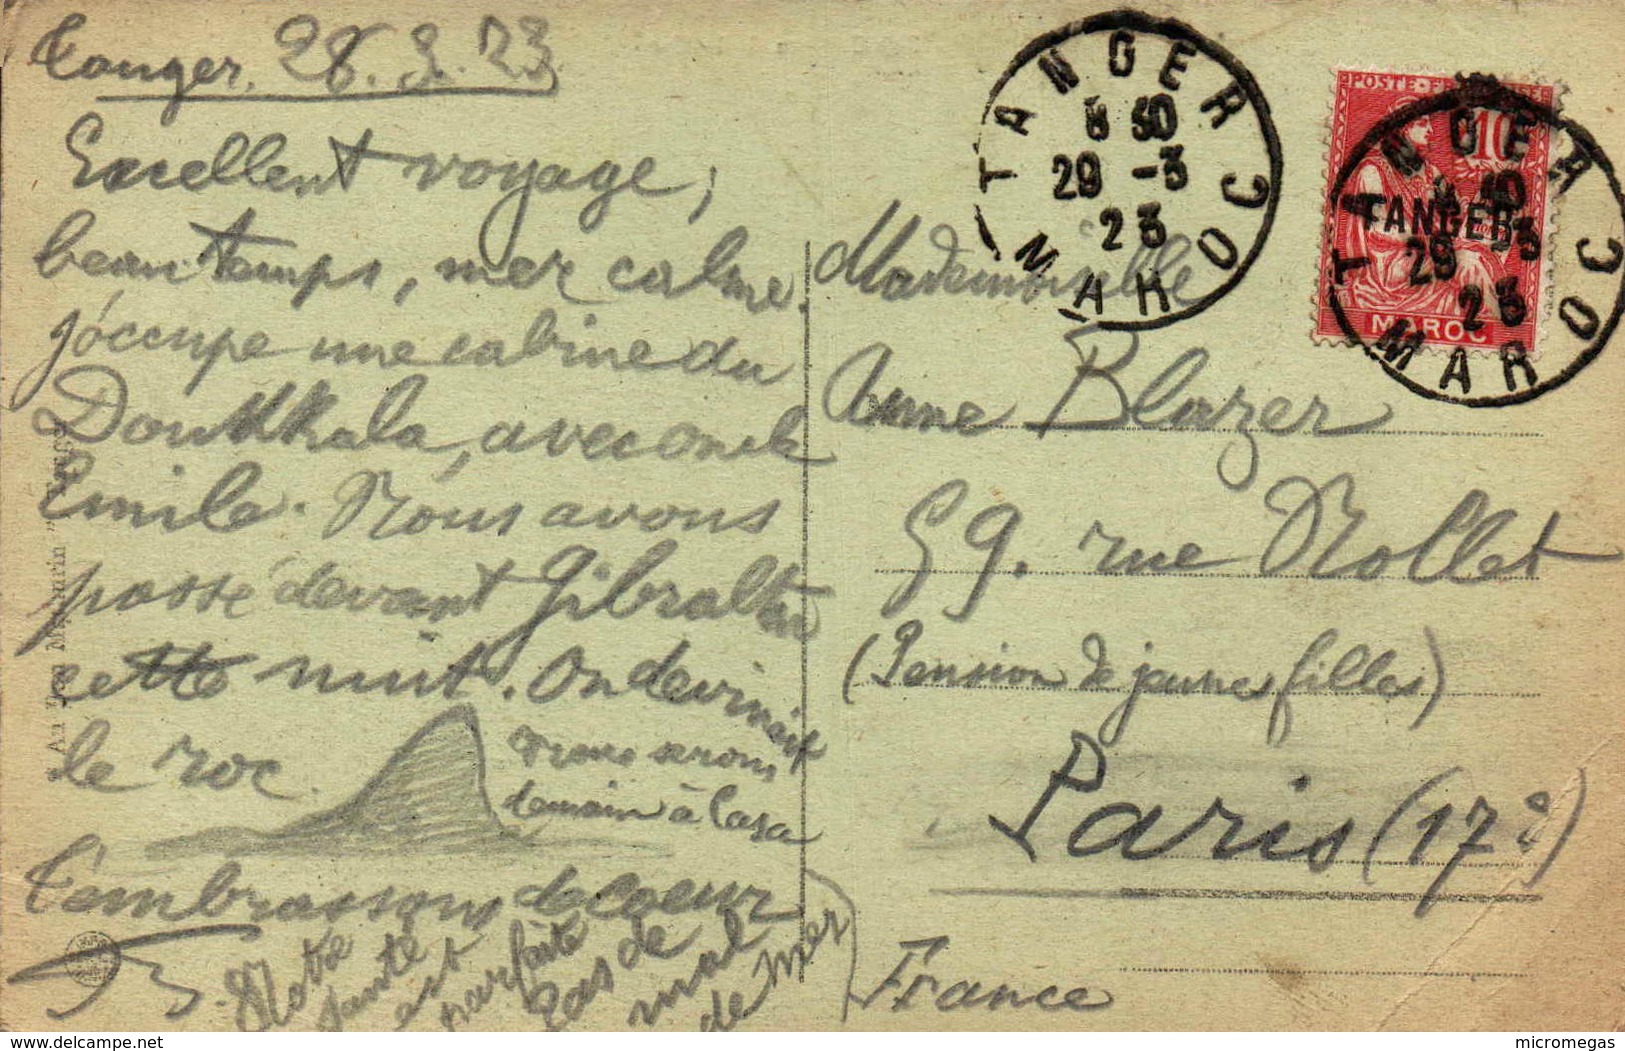 Tanger, 28.3.23
Excellent voyage,
beau temps, mer calme.
J'occupe une cabine du
Doukkala, avec oncle
Emile. Nous avons
passé devant Gibraltar
cette nuit. On devinait
le roc.
Nous serons
demain à Casa
T'embrassons de coeur
Notre
santé
est
parfaite
Pas de
mal
de mer
"Au Bon Mathurin" Tanger
TANGER
8 30
29 -3
23
MAROC
POSTE FRANÇAISE
10
TANGER
MAROC
TANGER
29 -3
23
MAROC
Mademoiselle
Anne Blazer
59. rue Nollet
(Pension de jeunes filles)
Paris (17e)
France
www.delcampe.net
micromegas